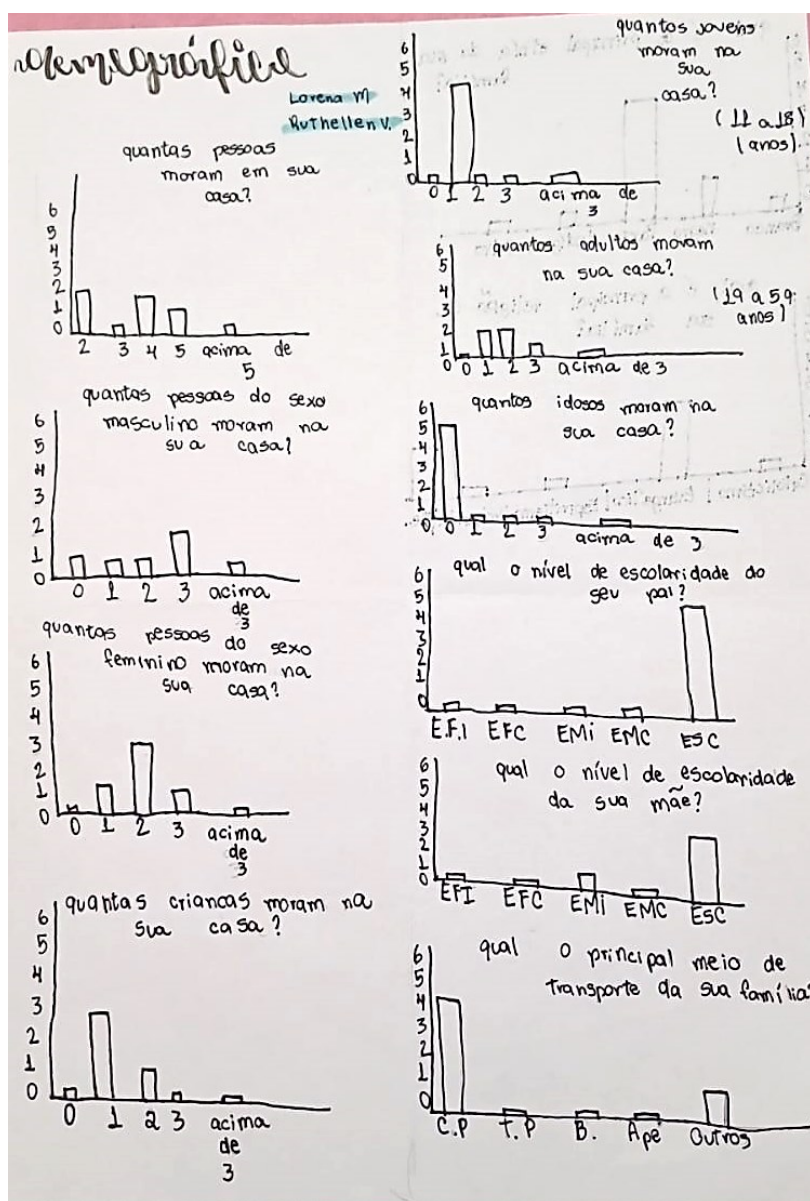 demográfico
Lorena M
Ruthellen V.
quantas pessoas
moram em sua
casa?
6
5
4
3
2
1
0
2 3 4 5 acima de
5
quantas pessoas do sexo
masculino moram na
sua casa?
6
5
4
3
2
1
0
0 1 2 3 acima
de
3
quantas pessoas do sexo
feminino moram na
sua casa?
6
5
4
3
2
1
0
0 1 2 3 acima
de
3
quantas criancas moram na
sua casa?
6
5
4
3
2
1
0
0 1 2 3 acima
de
3
quantos jovens
moram na
sua
casa?
(11 a 18)
(anos).
6
5
4
3
2
1
0
0 1 2 3 acima de
3
quantos adultos moram
na sua casa?
(19 a 59
anos)
6
5
4
3
2
1
0
0 1 2 3 acima de 3
quantos idosos moram na
sua casa?
6
5
4
3
2
1
0
0 1 2 3 acima de 3
qual o nível de escolaridade do
seu pai?
6
5
4
3
2
1
0
E.F.I EFC EMi EMC ESC
qual o nível de escolaridade
da sua mãe?
6
5
4
3
2
1
0
EFI EFC EMi EMC ESC
qual o principal meio de
transporte da sua família?
6
5
4
3
2
1
0
C.P T.P B. Apé Outros